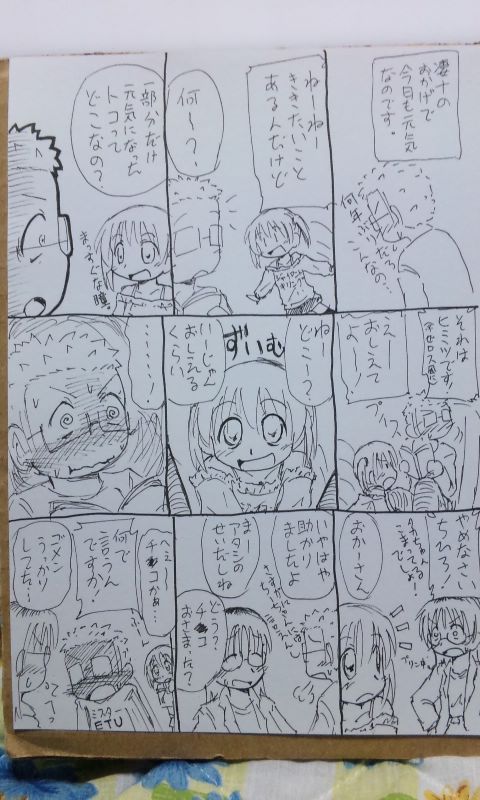 凄十の
おかげで
今日も元気
なのです。
何年ぶりだ
こんなの…
ねーねー
ききたいこと
あるんだけど
何〜?
一部分だけ
元気になった
トコって
どこなの?
まっすぐな瞳。
それは
ヒミツです!
えー
おしえて
よー!
プイッ
ねー
どこー?
ずいむ
いーじゃん
おしえる
くらい
……!
やめなさい
ちひろ!
こまってるでしょ!
おかーさん
いやはや
助かり
ましたよ
まー
アタシの
せいだしね
どう?
チ●コ
おさまった?
へぇ〜
チ●コかぁ…
何で
言うん
ですか!
ゴメン
うっかり
してた…